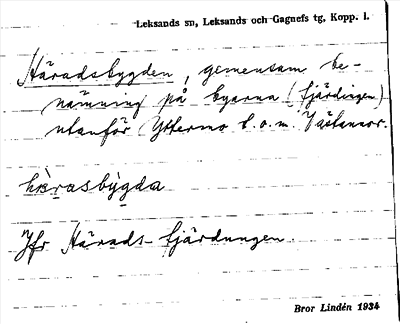 Leksands sn, Leksands och Gagnefs tg, Kopp. l.
Häradsbygden, gemensam be-
nämning på byarna (fjärdingen)
utanför Yttermo t.o.m.
hæ̀rasbýgda
Jfr Härads-fjärdungen.
Bror Lindén 1934